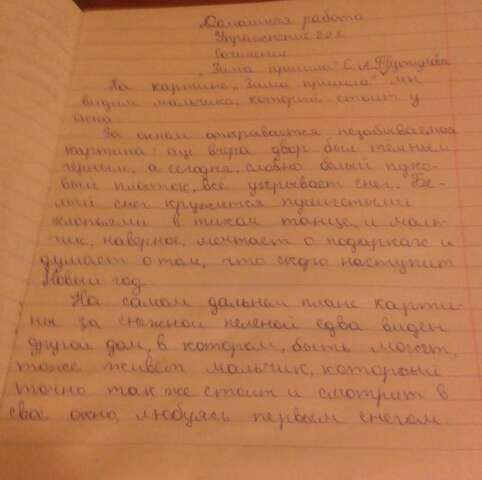 Домашняя работа
Упражнение 228
Сочинение
„Зима пришла" С.А.Тутунова
На картине „Зима пришла" мы
видим мальчика который стоит у
окна
За окном открывается незабываемая
картина: ещё вчера двор был темным
черным, а сегодня, словно белый пухо-
вый платок, всё укрывает снег. Бе-
лый снег кружится пушистыми
хлопьями в тихом танце, и маль-
чик, наверное, мечтает о подарках и
думает о том, что скоро наступит
Новый год
На самом дальнем плане карти-
ны за снежной пеленой едва виден
другой дом, в котором, быть может,
тоже живёт мальчик, который
точно так же стоит и смотрит в
свое окно, любуясь первым снегом.